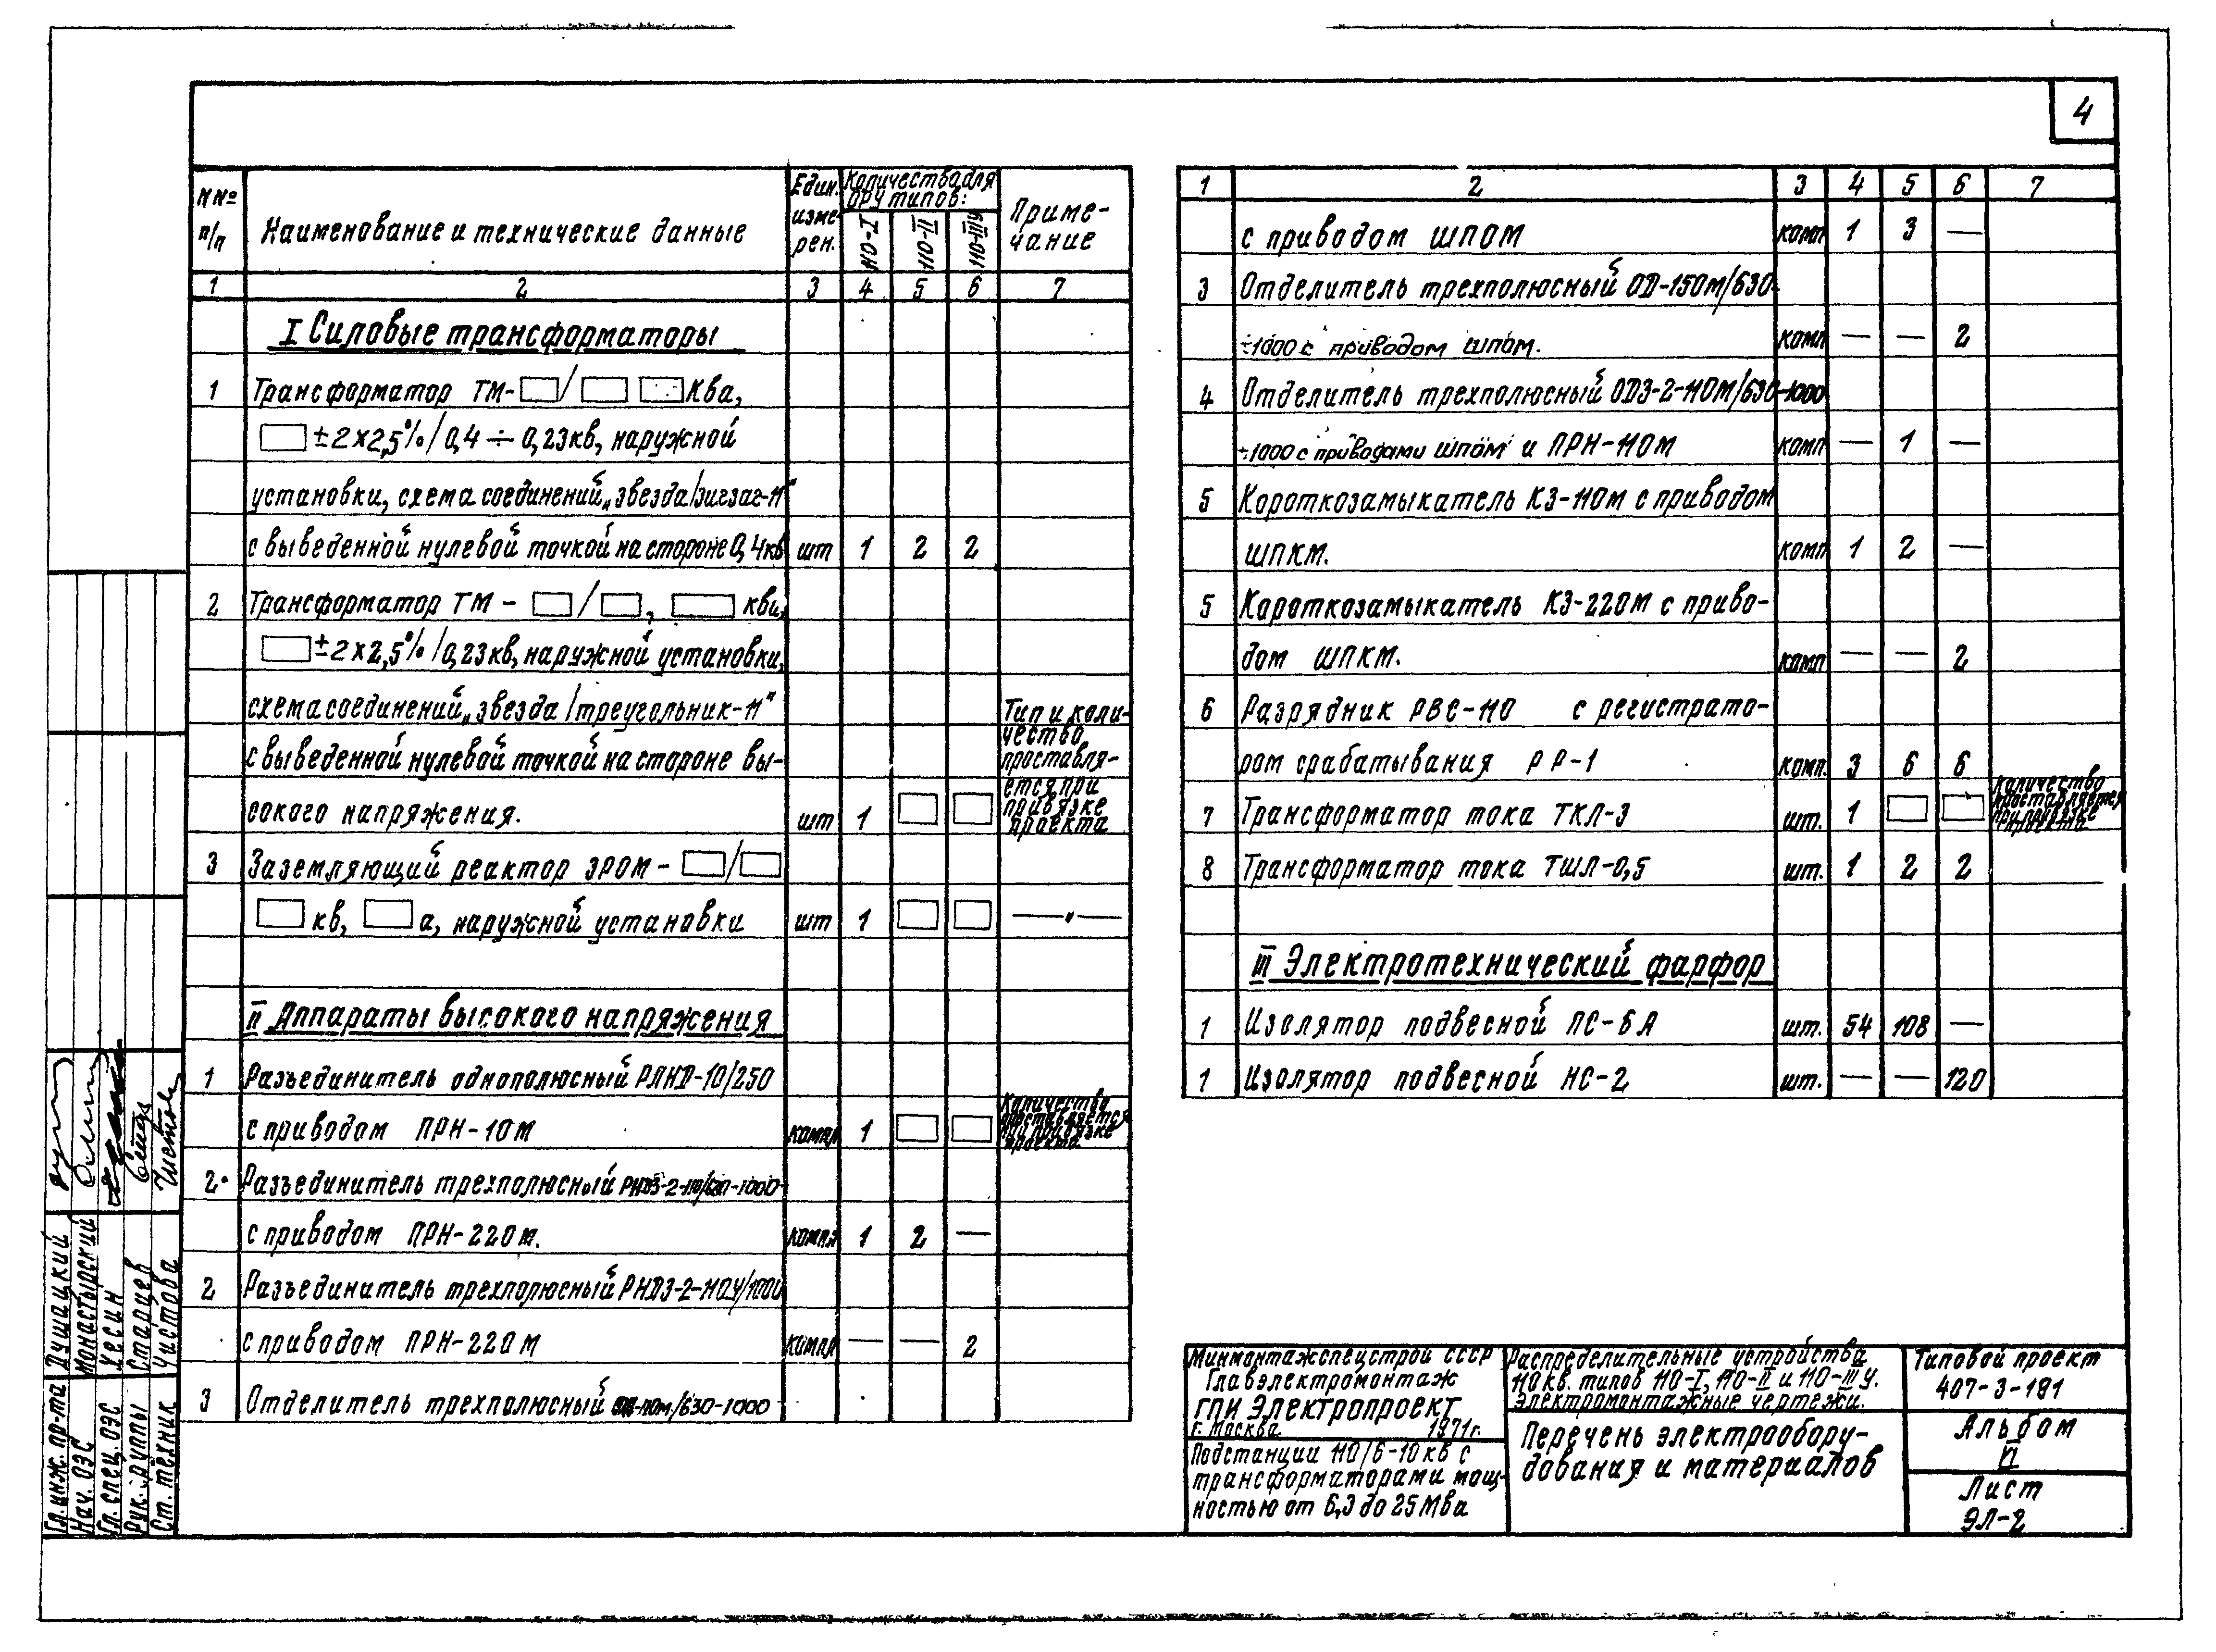 4
N№ п/п
Наименование и технические данные
Един. измерен.
Количества для ОРУ типов:
110-I
110-II
110-IIIу
Примечание
1 2 3 4 5 6 7
I Силовые трансформаторы
1 Трансформатор ТМ-□/□ □ Ква,
□ ±2×2,5%/0,4÷0,23кв, наружной
установки, схема соединений „звезда/зигзаг-11"
с выведенной нулевой точкой на стороне 0,4кв шт 1 2 2
2 Трансформатор ТМ - □/□, □ ква,
□ ±2×2,5%/0,23кв, наружной установки,
схема соединений „звезда/треугольник-11"
с выведенной нулевой точкой на стороне вы-
сокого напряжения. шт 1 □ □
Тип и коли-
чество
проставля-
ется при
привязке
проекта
3 Заземляющий реактор ЗРОМ - □/□
□ кв, □ а, наружной установки шт 1 □ □ —"—
II Аппараты высокого напряжения
1 Разъединитель однополюсный РЛНД-10/250
с приводом ПРН-10М компл 1 □ □
Количество
проставляется
при привязке
проекта
2. Разъединитель трехполюсный РНДЗ-2-110/630-1000
с приводом ПРН-220м. компл 1 2 —
2 Разъединитель трехполюсный РНДЗ-2-110У/1000
с приводом ПРН-220м компл — — 2
3 Отделитель трехполюсный ОД-110м/630-1000
1 2 3 4 5 6 7
с приводом ШПОМ комп 1 3 —
3 Отделитель трехполюсный ОД-150м/630-
÷1000 с приводом шпом. комп — — 2
4 Отделитель трехполюсный ОДЗ-2-110М/630-1000
÷1000 с приводами шпом и ПРН-110м комп — 1 —
5 Короткозамыкатель КЗ-110м с приводом
шпкм. комп 1 2 —
5 Короткозамыкатель КЗ-220м с приво-
дом шпкм. комп — — 2
6 Разрядник РВС-110 с регистрато-
ром срабатывания РР-1 комп. 3 6 6
7 Трансформатор тока ТКЛ-3 шт. 1 □ □
Количество
проставляется
при привязке
проекта
8 Трансформатор тока ТШЛ-0,5 шт. 1 2 2
III Электротехнический фарфор
1 Изолятор подвесной ПС-6А шт. 54 108 —
1 Изолятор подвесной НС-2 шт. — — 120
Гл. инж. пр-та Душацкий
Нач. ОЭС Монастырский
Гл. спец. ОЭС Хесин
Рук. группы Старцев
Ст. техник Чистова
Минмонтажспецстрой СССР
Главэлектромонтаж
ГПИ Электропроект
г. Москва 1971г.
Подстанции 110/6-10кв с
трансформаторами мощ-
ностью от 6,3 до 25 Мва
Распределительные устройства
110кв. типов 110-I, 110-II и 110-III у.
Электромонтажные чертежи.
Перечень электрообору-
дования и материалов
Типовой проект
407-3-181
Альбом
VI
Лист
ЭЛ-2